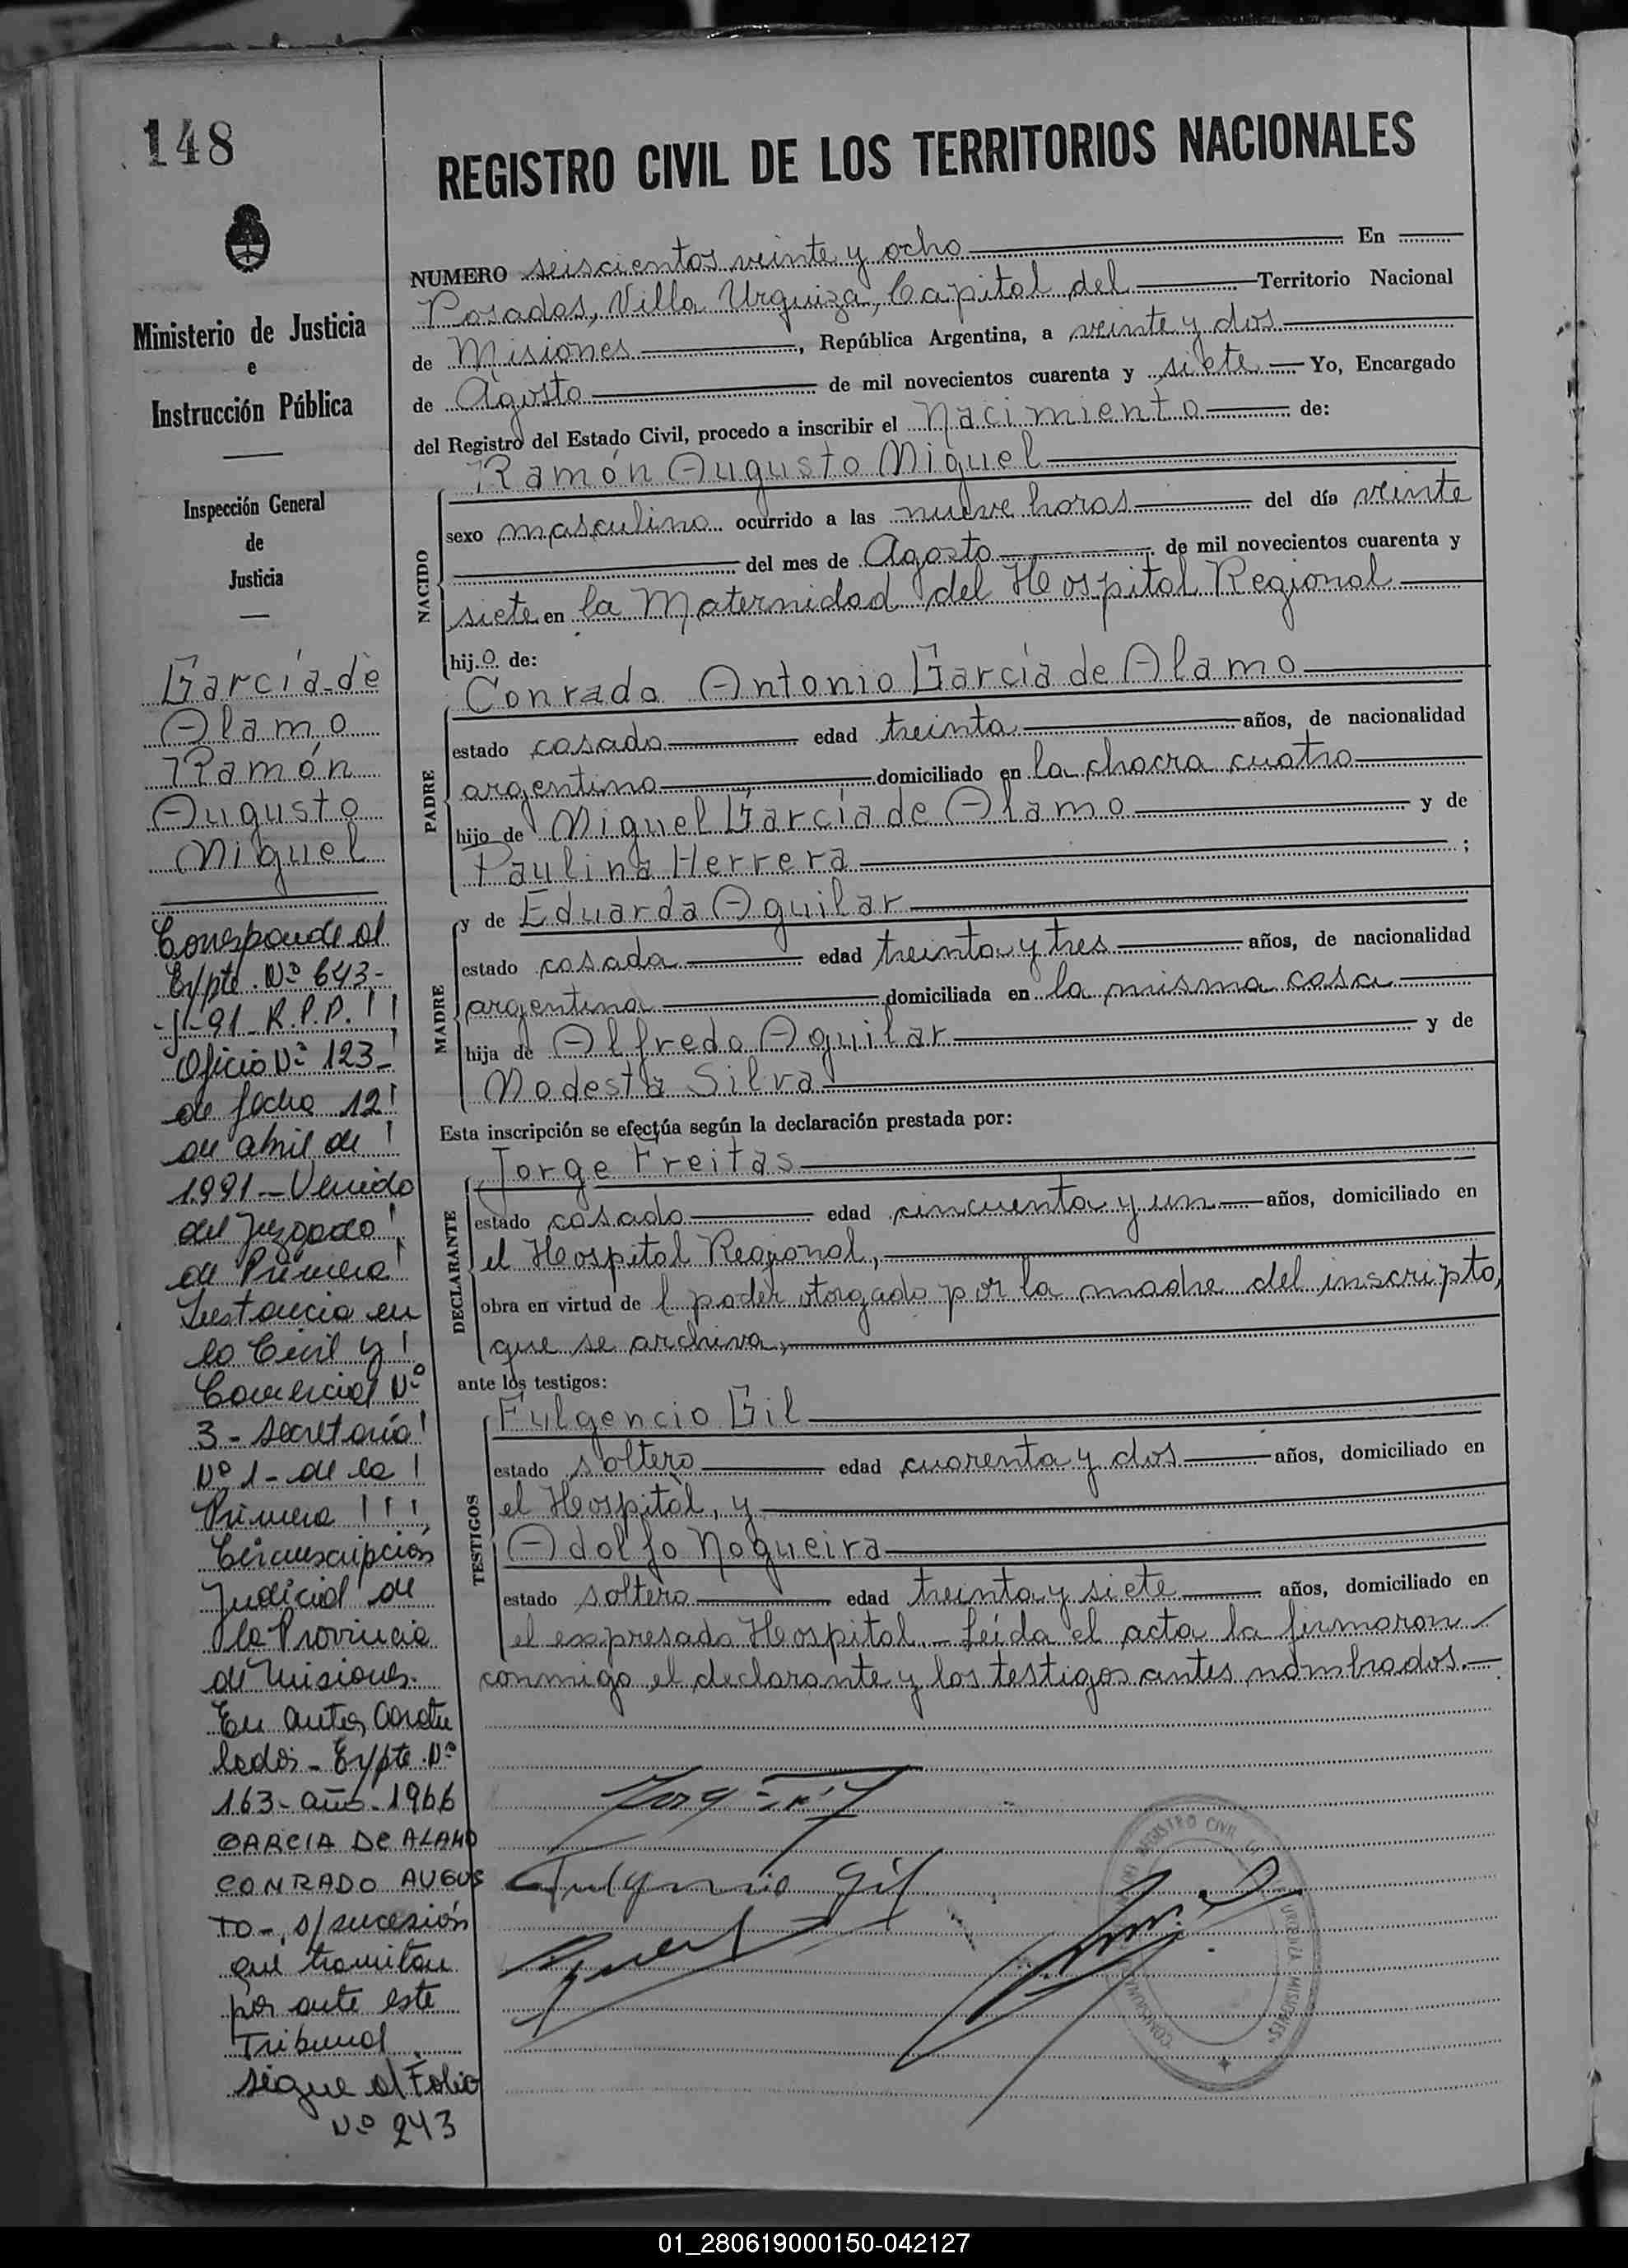 148
REGISTRO CIVIL DE LOS TERRITORIOS NACIONALES
Ministerio de Justicia
e
Instrucción Pública
Inspección General
de
Justicia
García de
Alamo
Ramón
Augusto
Miguel
Corresponde al
Expte. Nº 643-
-J-91-R.P.P.!!
Oficio Nº 123-!
de fecha 12!
de abril de !
1.991 - Venido
del Juzgado!
de Primera!
Instancia en
lo Civil y !
Comercial Nº
3 - secretaría!
Nº 1 - de la !
Primera !!!
Circunscripción
Judicial de
la Provincia
de Misiones.
En autos Caratu
lados - Expte. Nº
163 - año - 1966
GARCIA DE ALAMO
CONRADO AUGUS
TO -, s/sucesión
que tramitan
por ante este
Tribunal
sigue al Folio
Nº 243
NUMERO seiscientos veinte y ocho En
Posadas, Villa Urquiza, Capital del Territorio Nacional
de Misiones, República Argentina, a veinte y dos
de Agosto de mil novecientos cuarenta y siete Yo, Encargado
del Registro del Estado Civil, procedo a inscribir el Nacimiento de:
NACIDO
Ramón Augusto Miguel
sexo masculino ocurrido a las nueve horas del día veinte
del mes de Agosto de mil novecientos cuarenta y
siete en la Maternidad del Hospital Regional
hijo de:
PADRE
Conrado Antonio García de Alamo
estado casado edad treinta años, de nacionalidad
argentino domiciliado en la chacra cuatro
hijo de Miguel García de Alamo y de
Paulina Herrera ;
MADRE
y de Eduarda Aguilar
estado casada edad treinta y tres años, de nacionalidad
argentina domiciliada en la misma casa
hija de Alfredo Aguilar y de
Modesta Silva
Esta inscripción se efectúa según la declaración prestada por:
DECLARANTE
Jorge Freitas
estado casado edad cincuenta y un años, domiciliado en
el Hospital Regional,
obra en virtud de l poder otorgado por la madre del inscripto,
que se archiva,
ante los testigos:
TESTIGOS
Fulgencio Gil
estado soltero edad cuarenta y dos años, domiciliado en
el Hospital, y
Adolfo Nogueira
estado soltero edad treinta y siete años, domiciliado en
el expresado Hospital.- Leída el acta la firmaron
conmigo el declarante y los testigos antes nombrados.-
Fulgencio Gil
REGISTRO CIVIL
URQUIZA MISIONES
01_280619000150-042127